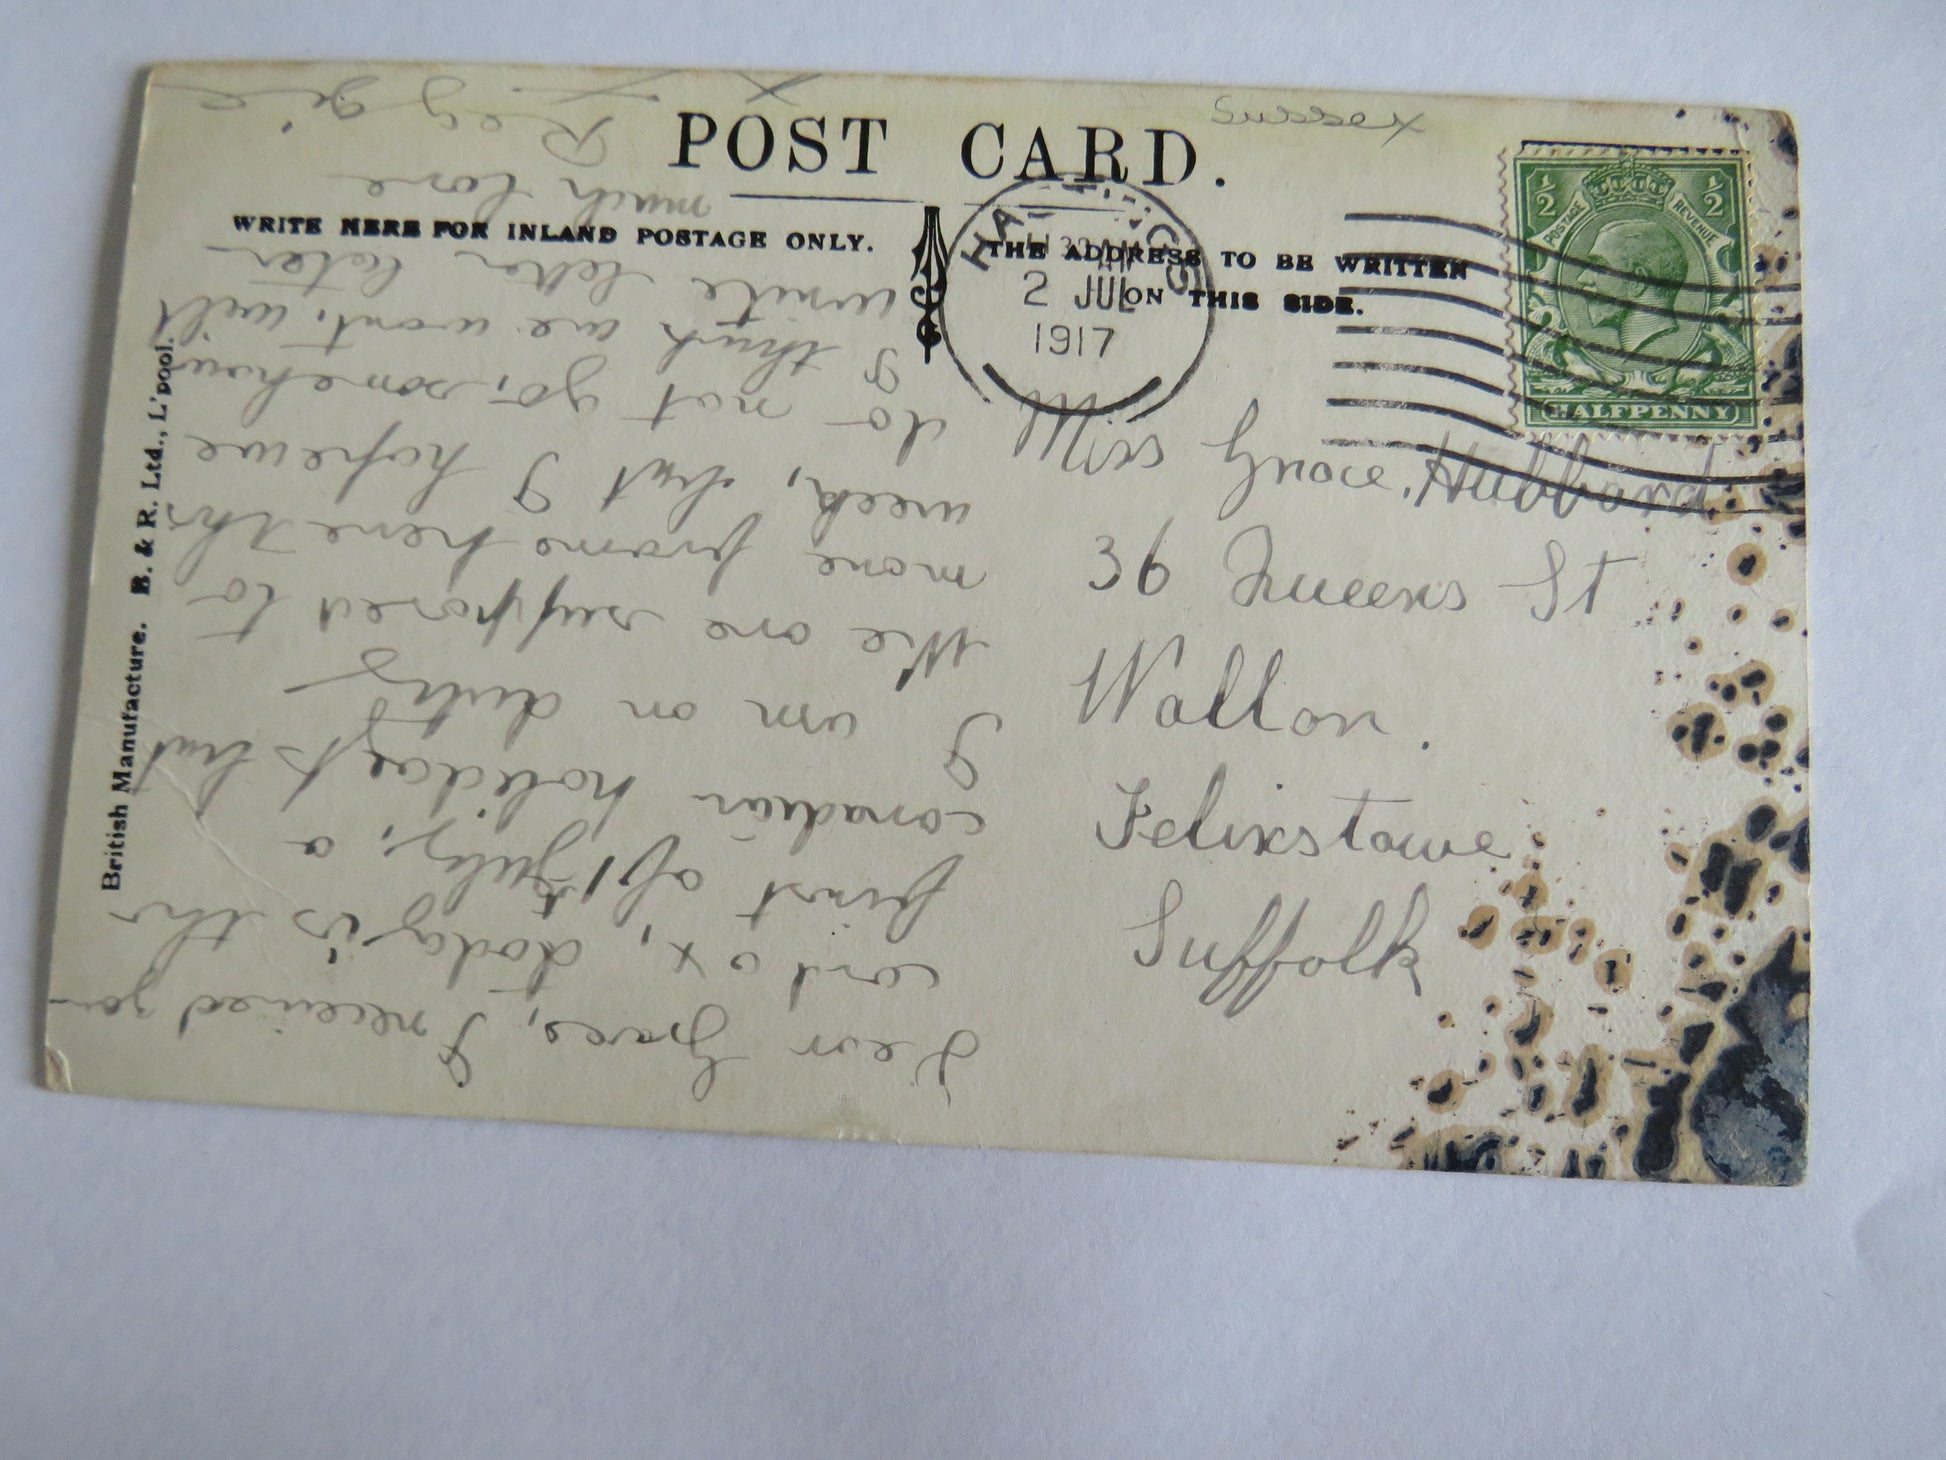 Sussex
POST CARD.
WRITE HERE FOR INLAND POSTAGE ONLY.
THE ADDRESS TO BE WRITTEN
ON THIS SIDE.
British Manufacture. B. & R. Ltd., L'POOL.
2 JUL
1917
½ ½
POSTAGE REVENUE
HALFPENNY
Miss Grace, Hubbard
36 Queens St
Walton.
Felixstowe
Suffolk
Dear Grace, I received your
card ox, today is the
first of July, a
canadian holidays but
I am on duty
We are supposed to
move frome here this
week, but I hope we
do not go, somehow
I think we wont. will
write letter later
much love
Reggie
x x